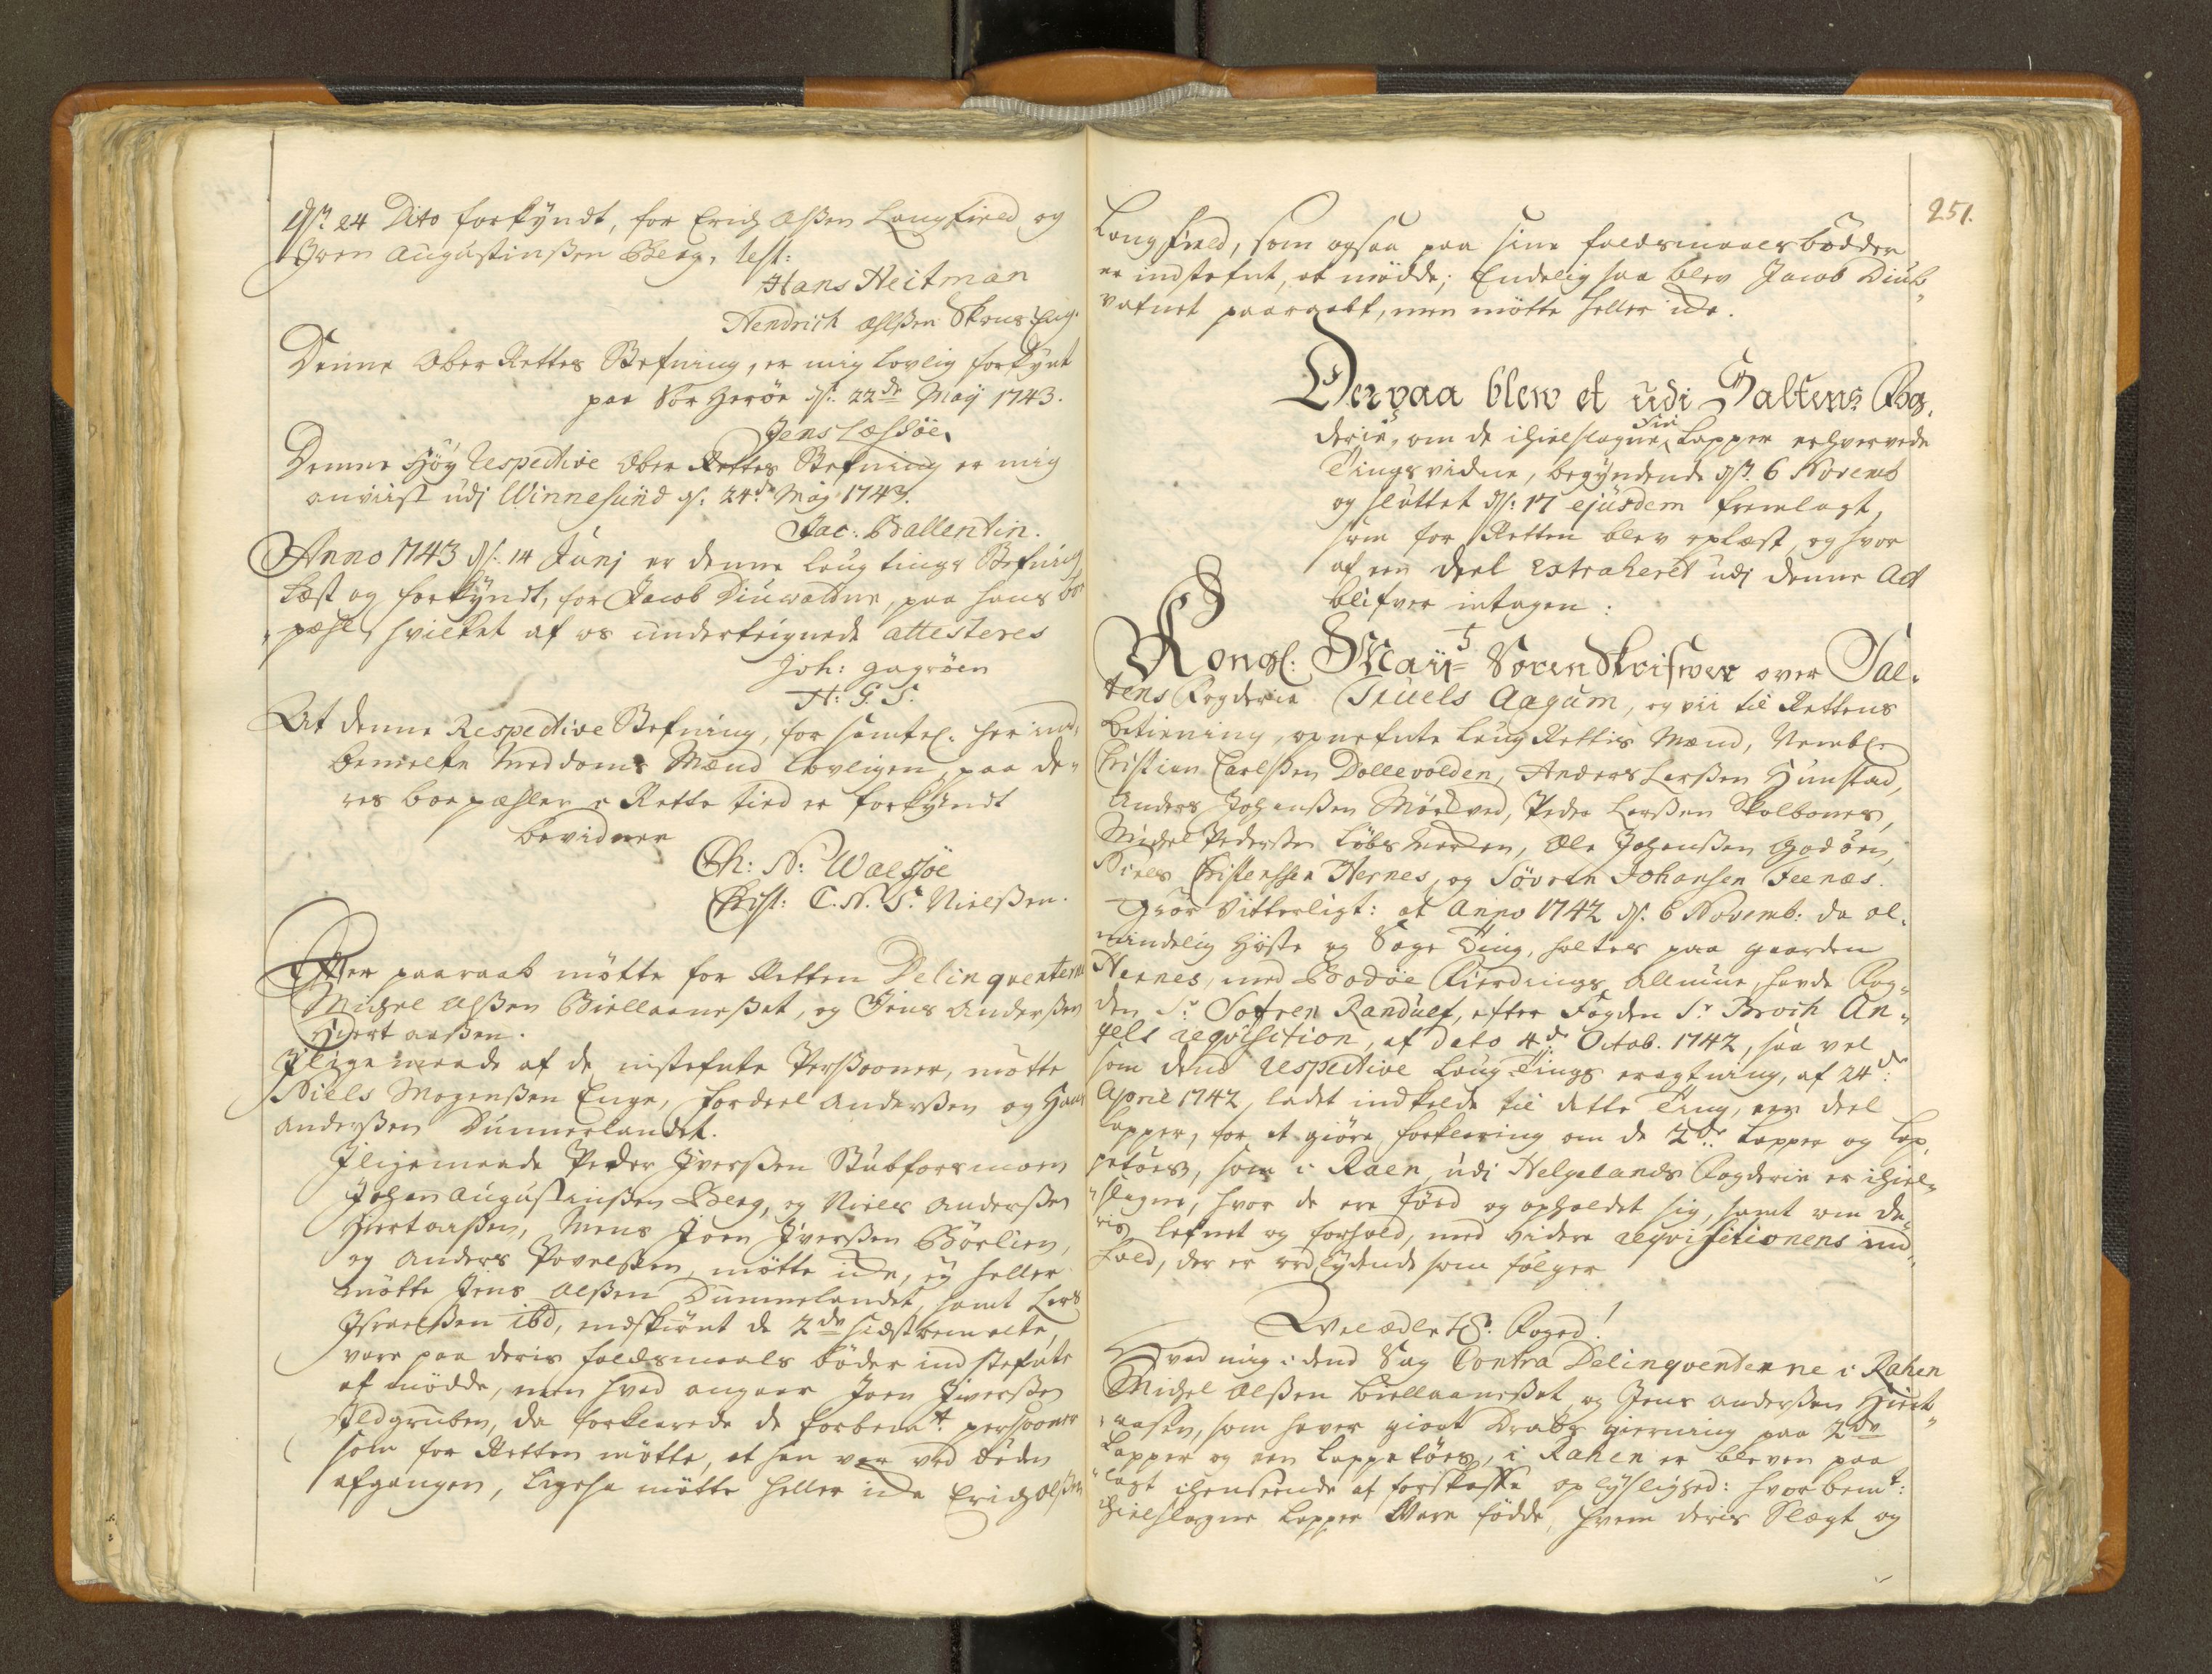 dſ: 24 Dito forkÿndt, for Erich Olßen Langfield og
Joen Augustinßen Berg, test:
Hans Heitman
Hendrich Olßen
Denne Ober Rettes Stefning, er mig lovlig forkÿnt
paa Sör Heröe dſ: 22de Maÿ 1743.
Jens Læssöe
Denne Höÿ respective Ober Rettes Stefning er mig
anviist udj Winnesund dſ: 24de Maÿ 1743.
Jac: Ballentin.
Anno 1743 dſ: 14 Junj er denne Laugtings Stefning
Læst og forkÿndt, for Jacob, paa hans boe
pæhl, hvilket af os underteignede attesteres
Joh: Gagröen
H: G. S.
At denne Respective Stefning, for samtel: her ind
bemelte Meddoms Mænd lovligen, paa de-
res boepæhler i Rette tied er forkÿndt
bevidner
Ch: N: Walsöe
Christ: C. N. S: Nielßen.
Efter paaraab mötte for Retten Delinqventerne
Michel Olßen Biellaaneßet, og Jens Anderßen
Hiertaaßen.
Jligemaade af de instefnte Perßooner, mötte
Niels Mogenßen Enge, Fordeel Anderßen og Hans
Anderßen Dunnerlandet.
Jligemaade Peder Jverßen Stubforsmoen
Johan Augustinßen Berg, og Niels Anderßen
Hiertaaßen, Mens Joen Jverßen Börlien,
og Anders Povelßen, mötte icke, eÿ heller
mötte Jens Olßen Dunnerlandet, samt Lars
Jsraelßen ibd, endskiönt de 2de sidstbemelte,
vare paa deris faldsmaals böder indstefnte
at mödde, men hvad angaar Joen Jverßen
Jldgruben, da forklarede de forbemt: persooner
som for Retten mötte, at han var ved döden
afgangen, ligesaa mötte heller icke Erich Olßen
251.
Langfield, som ogsaa paa sine faldsmaalsbödder
er indstefnt, at mödde; Endelig saa blev Jacob
vatnet paaraabt, men mötte heller icke.
Derpaa blew et udi Saltens Fog-
derie, om de ihielslagne Lapper erhvervede
Tingsvidne, begÿndende dſ: 6 Novemb
og sluttet dſ: 17 ejusdem fremlagt,
som for Retten blev oplæst, og hvor
af een deel extraheret udj denne Act
blifver intagen:
Kongl: Maÿts Sorenskrifwer over Sal-
tens Fogderie Truels Aagum, og vii til Rettens
betiening, opnefnte Laug Rettis Mænd, Nembl:
Christian Carlßen Dollevolden, Anders Larßen Hunstad,
Anders Johanßen Mörkved, Peder Larßen Skolbones,
Michel Pederßen Löbs, Ole Johanßen Godöen,
Niels Christenssen Hernes, og Sövren Johansen Seenæs.
Giör Vitterligt: at Anno 1742 dſ: 6 Novemb: da al-
mindelig Höste og Sage Ting, holtes paa gaarden
Hernes, med Bodöe Fierdings Allmue, havde Fog-
den Sr. Sofren Randulf, efter Fogden Sr. Broch An-
gels reqvisition, af dato 4de Octob. 1742, saa vel
som dend respective Laug Tings eragtning, af 24de:
April 1742, ladet indkalde til dette Ting, een deel
Lapper, for at giöre forklaring om de 2de: Lapper og Lap
petöes, som i Raen udi Helgelands Fogderie er ihiel-
slagne, hvor de ere föed og opholdet sig, samt om de-
ris lefnet og forhold, med videre reqvisitionens ind-
hold, der er ordlÿdende som fölger
Velædle Hr: Foged!
Hvad mig i dend Sag Contra Delinqventerne i Rahen
Michel Olßen Biellaaneßet, og Jens Anderßen Hiert-
aaßen, som haver giort Drabs gierning paa 2de
Lapper og een Lappetöes, i Rahen er bleven paa
lagt ihenseende at forskaffe oplÿslighed: hvor bemt:
ihielslagne Lapper Vare födde, hvem deris Slægt og